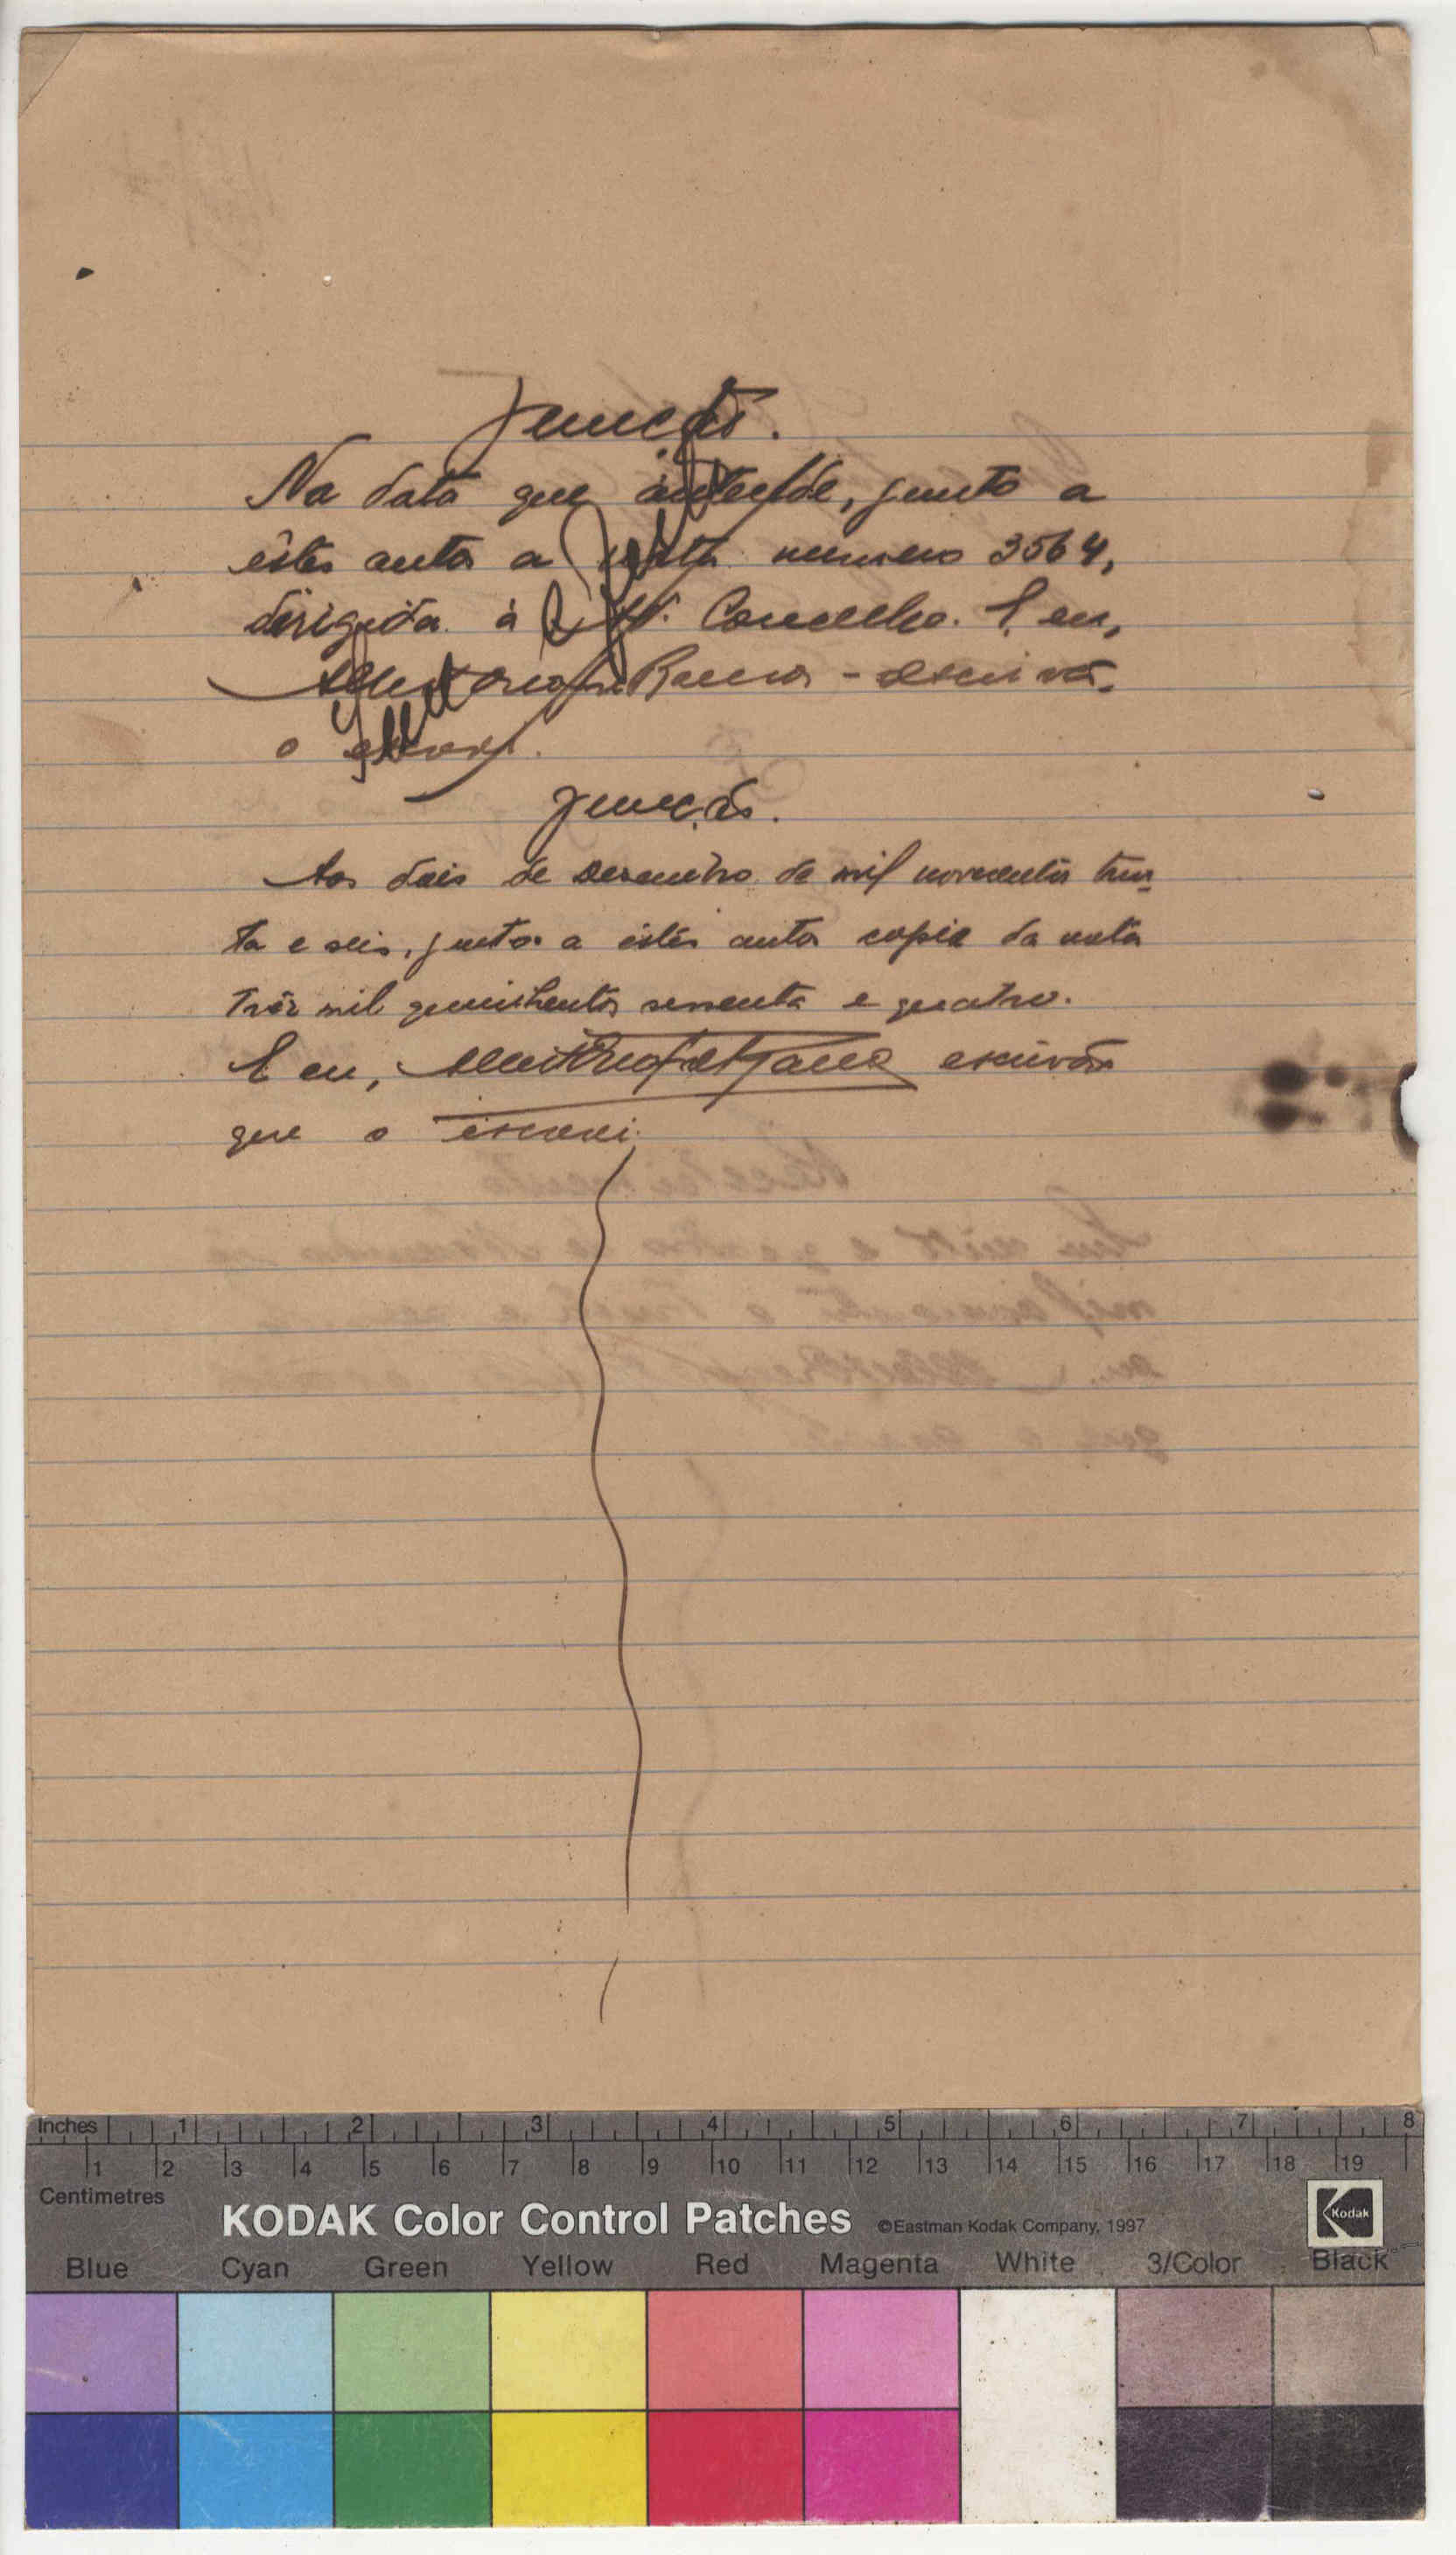 Juncção.
Na data que antecede, junto a
êstes autos a nota numero 3564,
dirigida à Conselho. E eu,
Ramos - escrivão,
o escrevi.
Juncção.
Aos dois de Dezembro de mil novecentos trin-
ta e seis, junto a êstes autos copia da nota
três mil quinhentos sessenta e quatro.
E eu, Ramos escrivão
que o escrevi.
Inches 1 2 3 4 5 6 7 8
1 2 3 4 5 6 7 8 9 10 11 12 13 14 15 16 17 18 19
Centimetres
KODAK Color Control Patches ©Eastman Kodak Company, 1997 Kodak
Blue Cyan Green Yellow Red Magenta White 3/Color Black